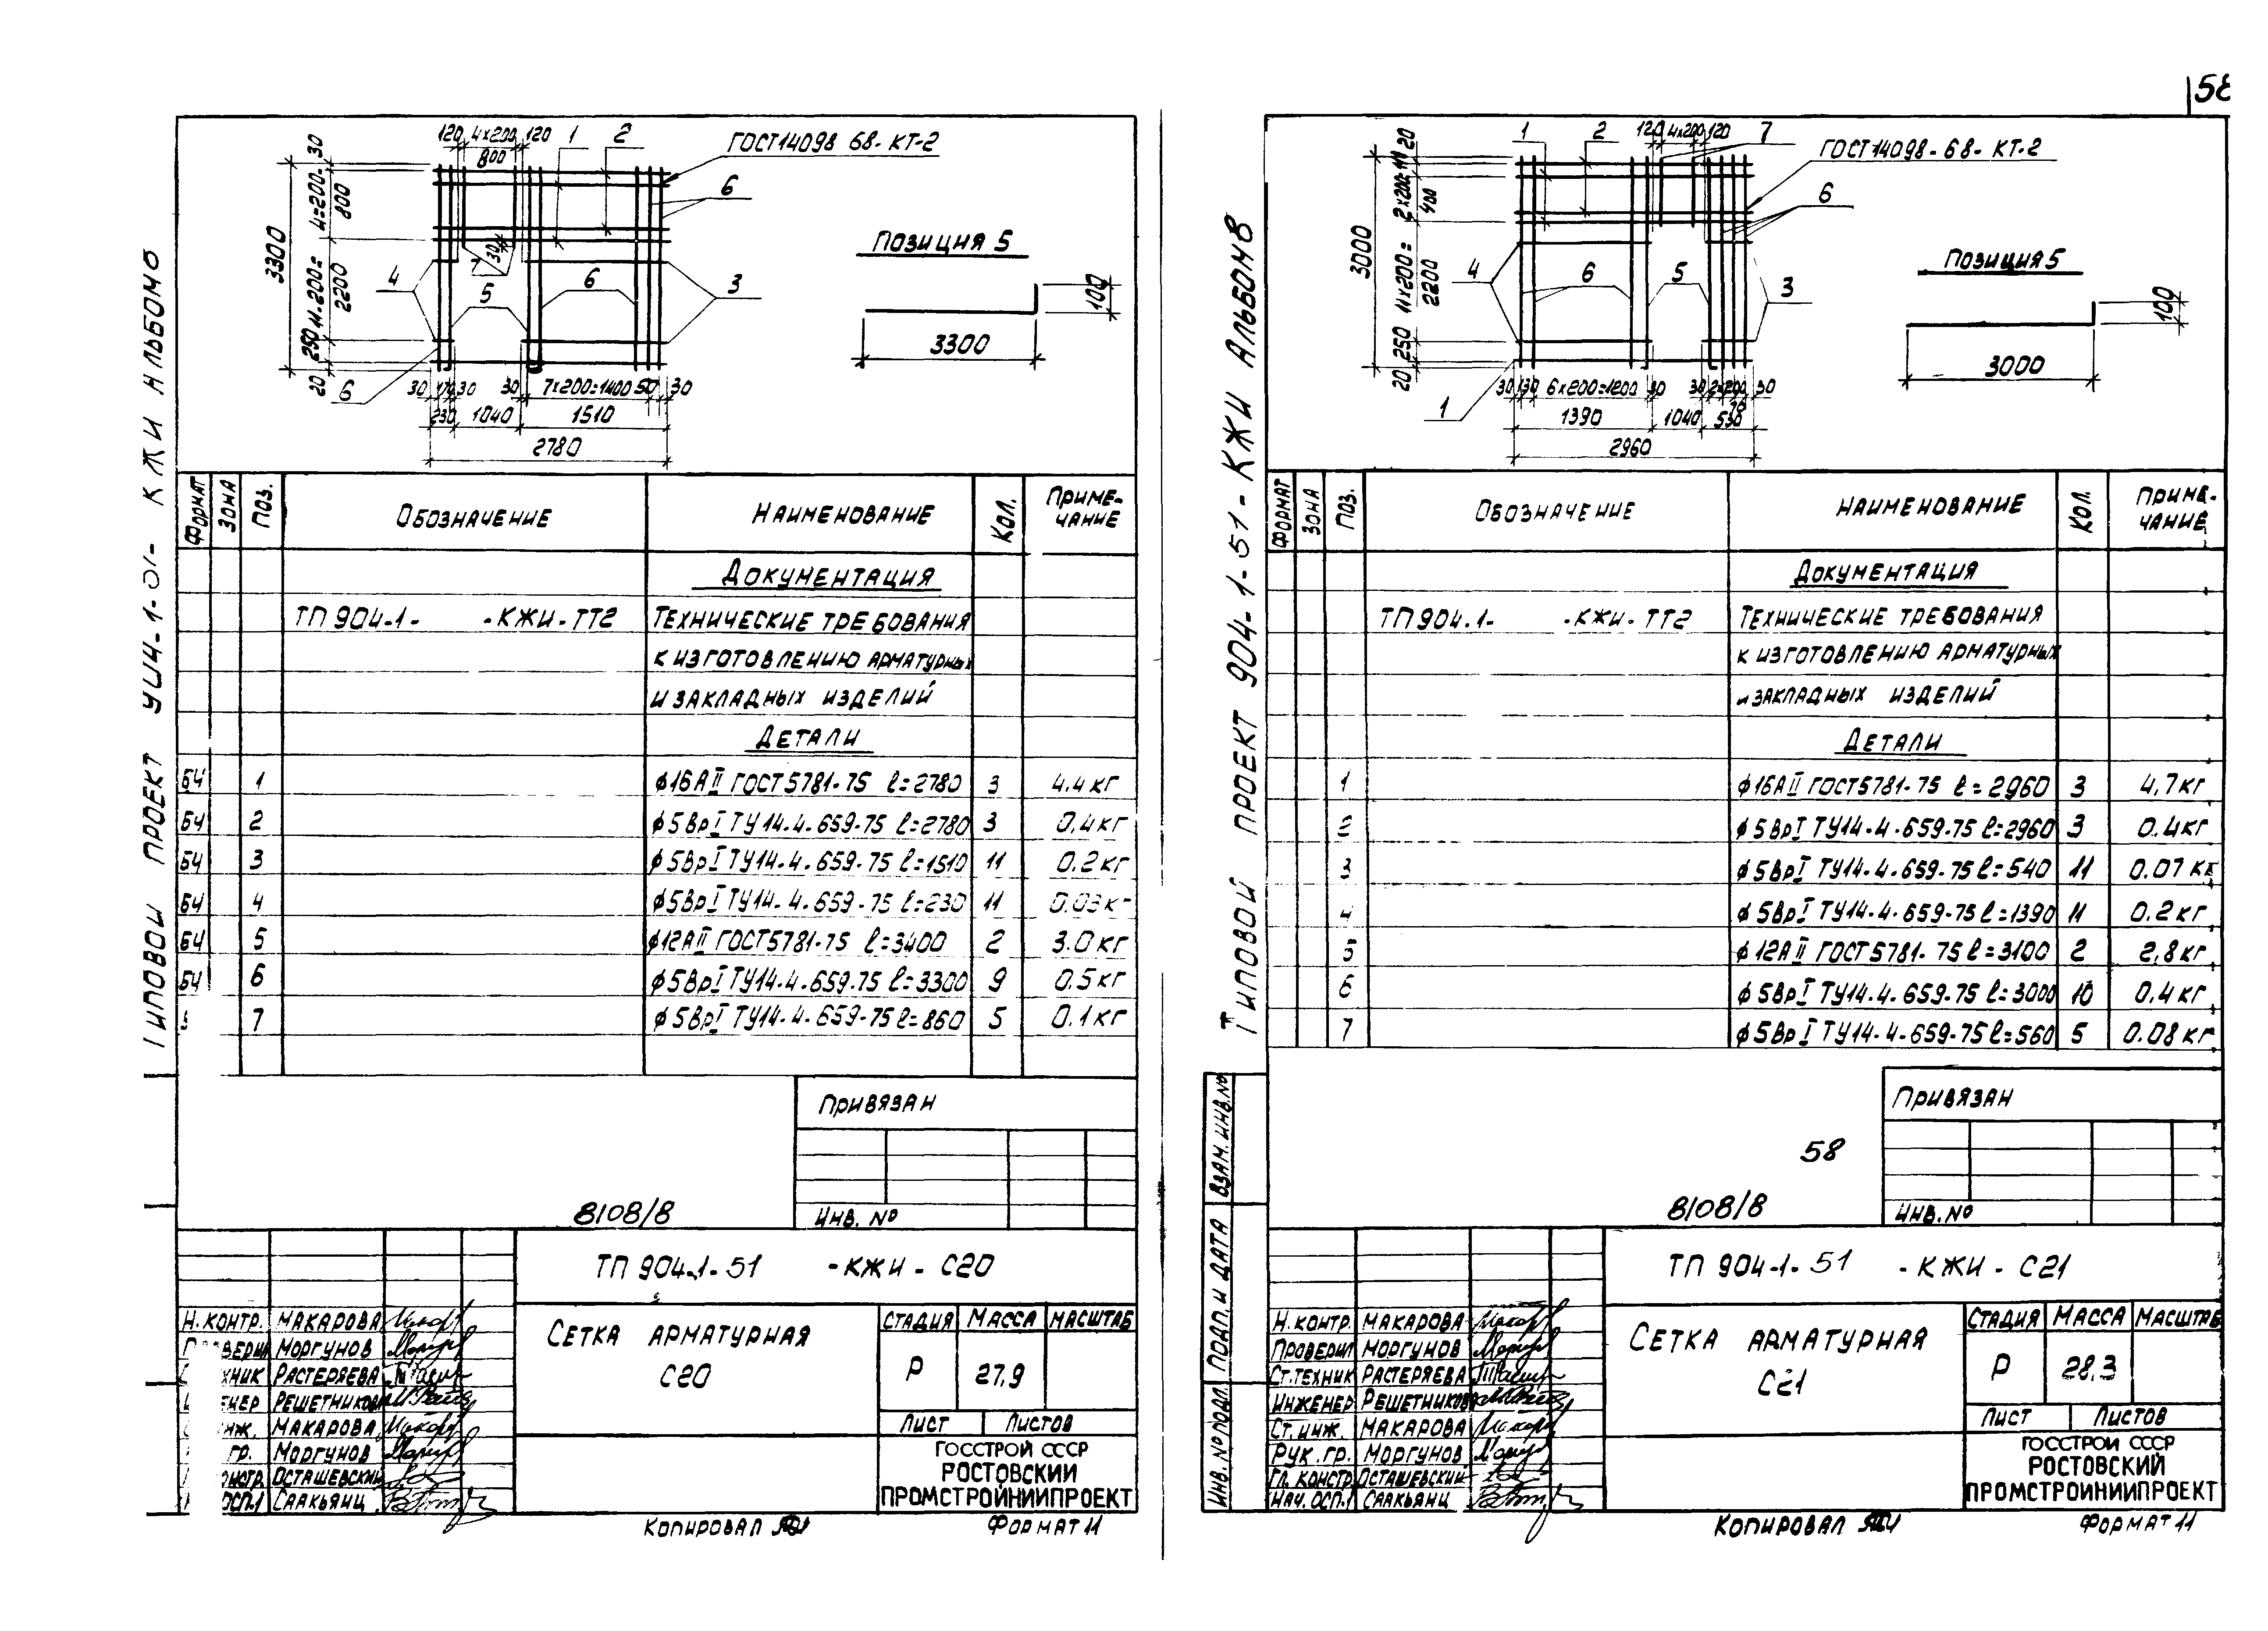 58
120 4×200 120 1 2
800
ГОСТ14098 68- КТ-2
6
3300
30
4=200=
800
11.200=
2200
250
20
4
7
30
5
6
3
6
30 170 30 30 7×200=1400 50 30
230 1040 1510
2780
ПОЗИЦИЯ 5
100
3300
ФОРМАТ ЗОНА ПОЗ. ОБОЗНАЧЕНИЕ НАИМЕНОВАНИЕ КОЛ. ПРИМЕ-
ЧАНИЕ
ДОКУМЕНТАЦИЯ
ТП 904-1- -КЖИ-ТТ2 ТЕХНИЧЕСКИЕ ТРЕБОВАНИЯ
К ИЗГОТОВЛЕНИЮ АРМАТУРНЫХ
И ЗАКЛАДНЫХ ИЗДЕЛИЙ
ДЕТАЛИ
БЧ 1 ϕ16АII ГОСТ5781-75 ℓ=2780 3 4.4 кг
БЧ 2 ϕ5ВрI ТУ14-4-659-75 ℓ=2780 3 0,4 кг
БЧ 3 ϕ5ВрI ТУ14-4-659-75 ℓ=1510 11 0.2 кг
БЧ 4 ϕ5ВрI ТУ14-4-659-75 ℓ=230 11 0.03 кг
БЧ 5 ϕ12АII ГОСТ5781-75 ℓ=3400 2 3.0 кг
БЧ 6 ϕ5ВрI ТУ14-4-659-75 ℓ=3300 9 0.5 кг
7 ϕ5ВрI ТУ14-4-659-75 ℓ=860 5 0.1 кг
ПРИВЯЗАН
ИНВ. №
8108/8
ТП 904-1-51 -КЖИ - С20
Н. КОНТР. МАКАРОВА
МОРГУНОВ
РАСТЕРЯЕВА
РЕШЕТНИКОВА
МАКАРОВА
ГР. МОРГУНОВ
ОСТАШЕВСКИЙ
СААКЬЯНЦ
СЕТКА АРМАТУРНАЯ
С20
СТАДИЯ МАССА МАСШТАБ
Р 27,9
ЛИСТ ЛИСТОВ
ГОССТРОЙ СССР
РОСТОВСКИЙ
ПРОМСТРОЙНИИПРОЕКТ
КОПИРОВАЛ ФОРМАТ 11
ТИПОВОЙ ПРОЕКТ 904-1-51- КЖИ АЛЬБОМ 8
1 2 120 4×200 120 7
ГОСТ14098-68- КТ-2
6
3000
20
2×200=
400
11×200=
2200
250
20
4
6
5
3
1
30 130 6×200=1200 30 30 2×200 30
1390 1040 530
2960
ПОЗИЦИЯ 5
100
3000
ФОРМАТ ЗОНА ПОЗ. ОБОЗНАЧЕНИЕ НАИМЕНОВАНИЕ КОЛ. ПРИМЕ-
ЧАНИЕ
ДОКУМЕНТАЦИЯ
ТП 904.1- -КЖИ-ТТ2 ТЕХНИЧЕСКИЕ ТРЕБОВАНИЯ
К ИЗГОТОВЛЕНИЮ АРМАТУРНЫХ
И ЗАКЛАДНЫХ ИЗДЕЛИЙ
ДЕТАЛИ
1 ϕ16АII ГОСТ5781-75 ℓ=2960 3 4,7 кг
2 ϕ5ВрI ТУ14-4-659-75 ℓ=2960 3 0.4 кг
3 ϕ5ВрI ТУ14-4-659-75 ℓ=540 11 0.07 кг
4 ϕ5ВрI ТУ14-4-659-75 ℓ=1390 11 0.2 кг
5 ϕ12АII ГОСТ5781-75 ℓ=3100 2 2,8 кг
6 ϕ5ВрI ТУ14-4-659-75 ℓ=3000 10 0.4 кг
7 ϕ5ВрI ТУ14-4-659-75 ℓ=560 5 0.08 кг
ПРИВЯЗАН
ИНВ. №
58
8108/8
ВЗАМ. ИНВ. №
ПОДП. И ДАТА
ИНВ. № ПОДЛ.
ТП 904-1-51 -КЖИ - С21
Н. КОНТР. МАКАРОВА
ПРОВЕРИЛ МОРГУНОВ
СТ. ТЕХНИК РАСТЕРЯЕВА
ИНЖЕНЕР РЕШЕТНИКОВА
СТ. ИНЖ. МАКАРОВА
РУК. ГР. МОРГУНОВ
ГЛ. КОНСТР. ОСТАШЕВСКИЙ
НАЧ. ОСП.1 СААКЬЯНЦ
СЕТКА АРМАТУРНАЯ
С21
СТАДИЯ МАССА МАСШТАБ
Р 28,3
ЛИСТ ЛИСТОВ
ГОССТРОЙ СССР
РОСТОВСКИЙ
ПРОМСТРОИНИИПРОЕКТ
КОПИРОВАЛ ФОРМАТ 11